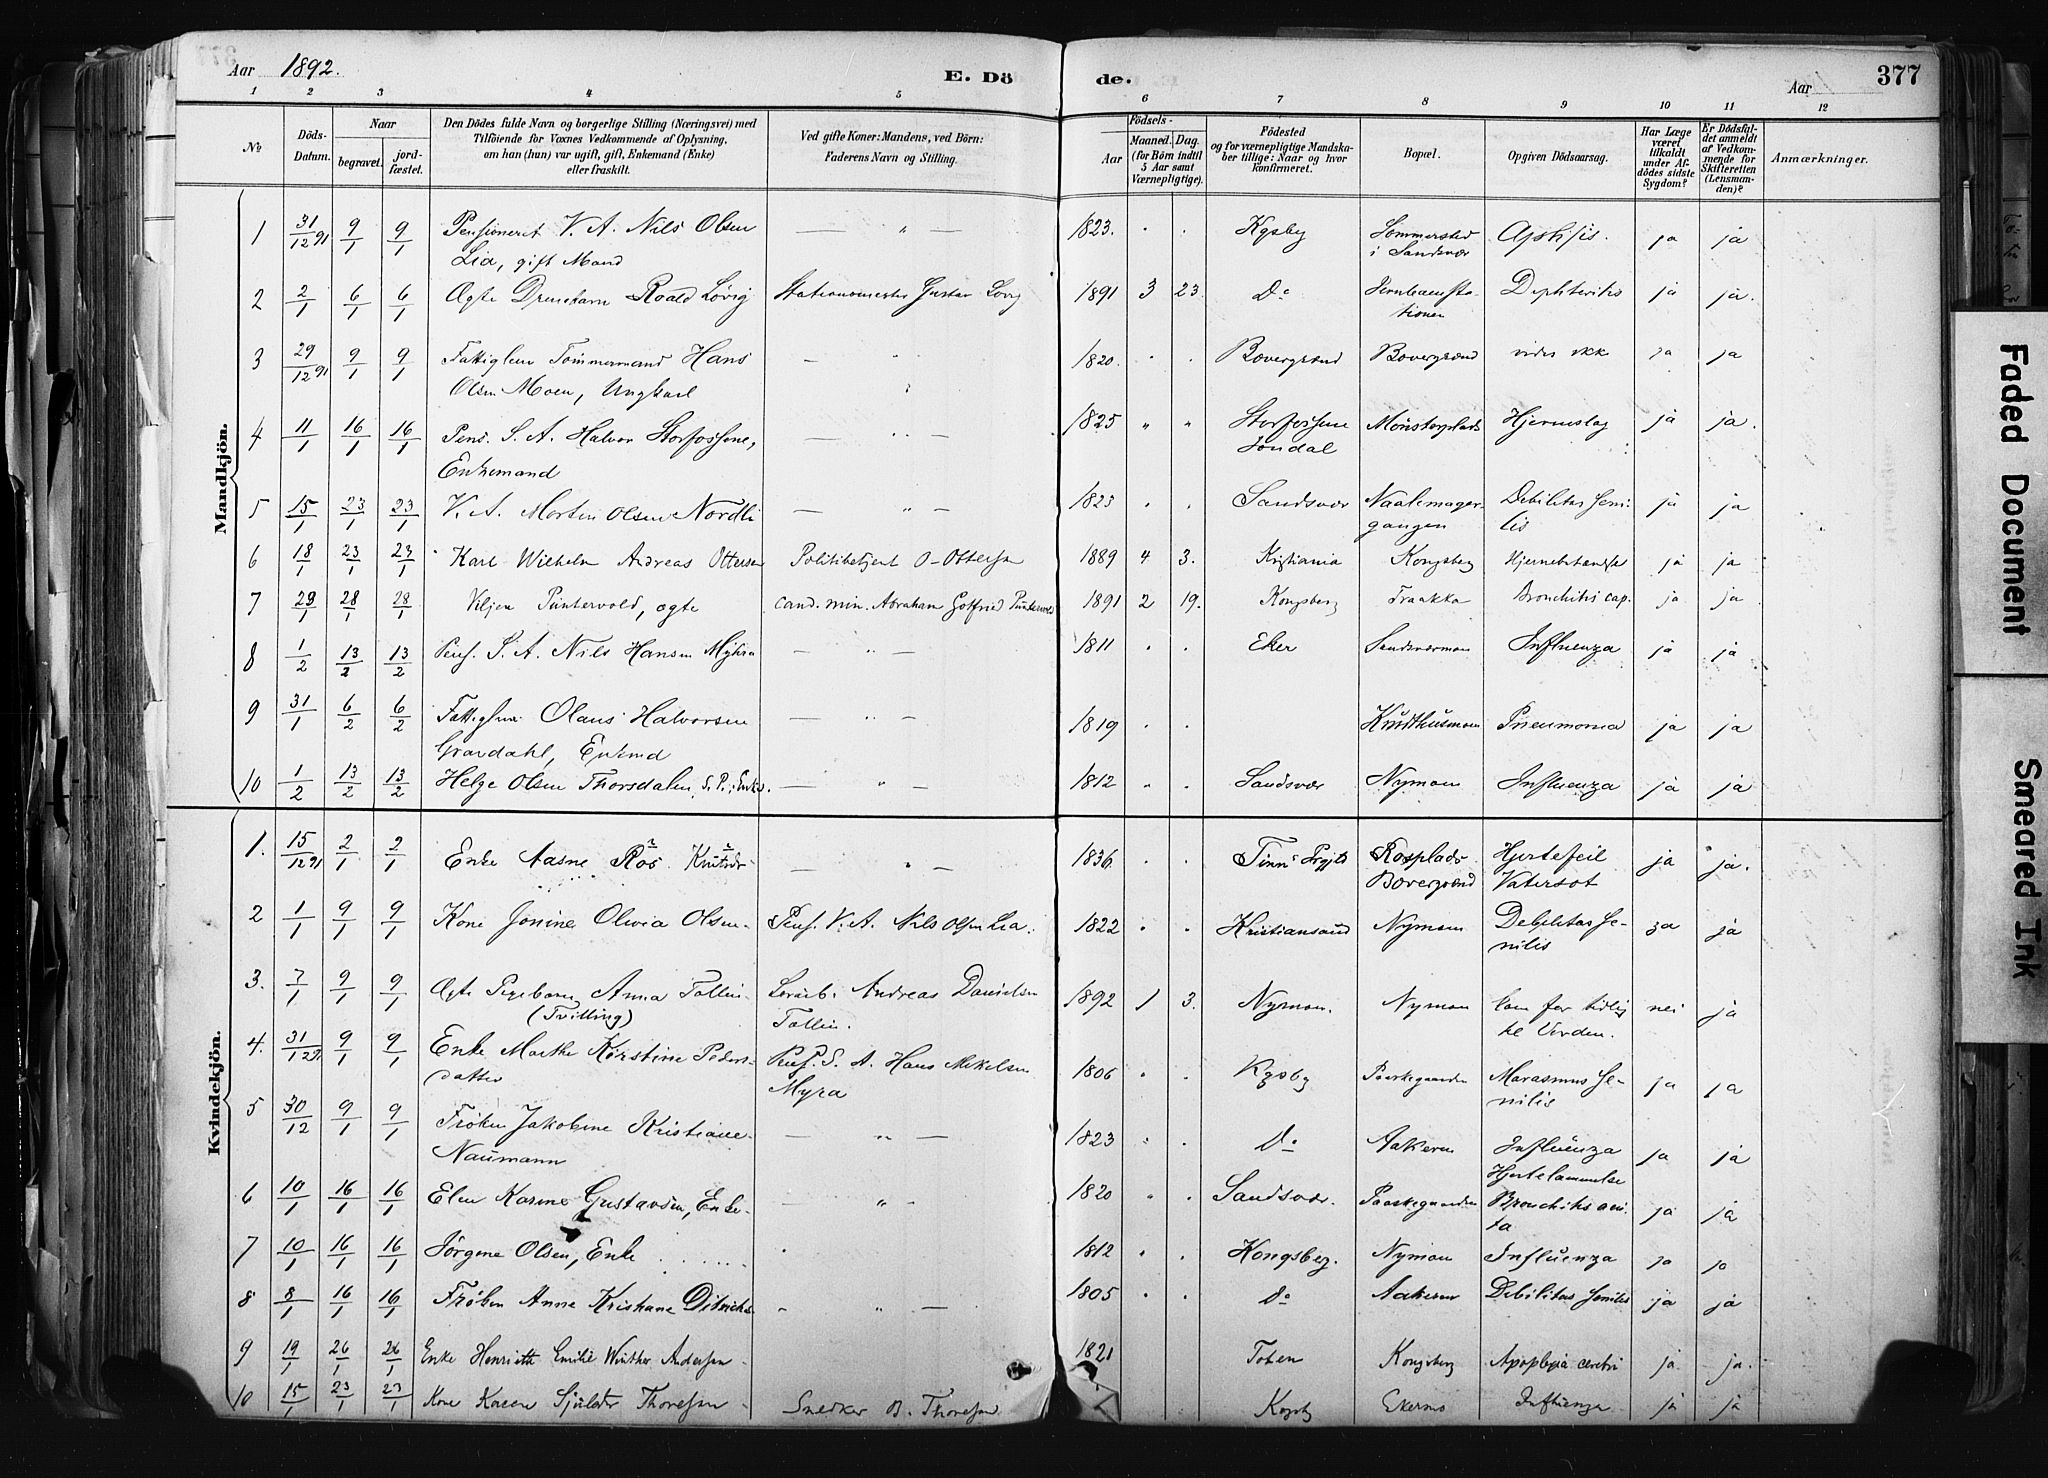 Aar 1892. E. Dö de. Aar 377
1 2 3 4 5 6 7 8 9 10 11 12
№
Döds-Datum.
Naar
begravet.
jord-fæstet.
Den Dödes fulde Navn og borgerlige Stilling (Næringsvei) med
Tilföiende for Voxnes Vedkommende af Oplysning,
om han (hun) var ugift, gift, Enkemand (Enke)
eller fraskilt.
Ved gifte Koner: Mandens, ved Börn:
Faderens Navn og Stilling.
Födsels-
Aar
Maaned. Dag.
(for Börn indtil
5 Aar samt
Værnepligtige).
Födested
og for værnepligtige Mandska-
ber tillige: Naar og hvor
konfirmeret.
Bopæl.
Opgiven Dödsaarsag.
Har Læge
været
tilkaldt
under Af-
dödes sidste
Sygdom?
Er Dödsfal-
det anmeldt
af Vedkom-
mende for
Skifteretten
(Lensman-
den)?
Anmærkninger.
Mandkjön.
1 31/12 91 9/1 9/1 Pensioneret V. A. Nils Olsen — " — 1823. " " Kgsby Sommersted ja ja
Lia, gift Mand i Sandsvær
2 2/1 6/1 6/1 Ægte Drengebarn Roald Lövig Stationsmester Gustav Lövig 1891 3 23 Do Jernbanesta- Diphteritis ja ja.
tionen
3 29/12 91 9/1 9/1 Fattiglem Tømmermand Hans — " 1820. " " Bævergrænd Bævergrænd vides ikke ja ja
Olsen Moen, Ungkarl
4 11/1 16/1 16/1 Pens. S. A. Halvor Storfossene, — " — 1825 " " Storfossene Mönsterplads Hjerneslag ja ja.
Enkemand Jondal
5 15/1 23/1 23/1 V. A. Morten Olsen Nordli — " — 1825 " " Sandsvær Naalemager- Debilitas Seni- ja ja
gangen lis
6 18/1 23/1 23/1 Karl Wilhelm Andreas Ottersen Politibetjent O. Ottersen 1889 4 3. Kristiania Kongsberg ja ja
7 29/1 28/1 28/1 Viljen Püntervold, ægte cand. min. Abrahan Gotfried Püntervold 1891 2 19. Kongsberg Traakka Bronchitis cap. ja ja
8 1/2 13/2 13/2 Pens. S. A. Nils Hansen Myhra — " — 1811 " " Eker Sandsværmoen Influenza ja ja
9 31/1 6/2 6/2 Fattiglem Olaus Halvorsen — " — 1819 " " Krudthusmoen Pneumonia ja ja
Gravdahl, Enkmd
10 1/2 13/2 13/2 Helge Olsen Thorsdalen, S. P., Enkem. — " — 1812 " " Sandsvær Nymoen Influenza ja ja
Kvindekjön.
1. 15/12 91 2/1 2/1 Enke Aasne Ros Knutsdr — " — 1836 " " Tinns Prgjld Rosplads Hjertefeil ja ja.
Bævergrænd Vatersot
2 1/1 9/1 9/1 Kone Jonine Olivia Olsen Pens. V. A. Nils Olsen Lia. 1822 " " Kristiansand Nymoen Debilitas Se- ja ja
nilis
3. 7/1 9/1 9/1 Ægte Pigebarn Anna Tollin Andreas Danielsen 1892 1 3. Nymoen. Nymoen kom for tidlig nei ja
(Tvilling) Tollin. til Verden.
4. 31/12 91 9/1 9/1 Enke Marthe Kirstine Peders- Pens. S. A. Hans Mikelsen 1806 " " Kgsby Paaskegaarden Marasmus Se- ja ja
datter Myra nilis
5 30/12 9/1 9/1 Frøken Jakobine Kristiane — " — 1823 " " Do Aakeren Influenza ja ja
Naumann Hjertelammelse
6 10/1 16/1 16/1 Elen Karine Gustavsen, Enke — " — 1820 " " Sandsvær. Paaskegaarden Bronchitis acu- ja ja
ta
7 10/1 16/1 16/1 Jörgine Olsen, Enke 1812 " " Kongsberg. Nymoen Influenza ja ja
8 8/1 16/1 16/1 Frøken Anne Kristiane Ditrichs — " — 1805 " " Do Aakeren Debilitas Senilis ja ja
9 19/1 26/1 26/1 Enke Henriette Emilie Winther Andersen 1821 Toten Kongsberg Apoplexia cerebri ja ja.
10 15/1 23/1 23/1 Kone Karen Thoresen Snedker B. Thoresen Kgsby Ekermo Influenza ja ja
Faded Document
Smeared Ink